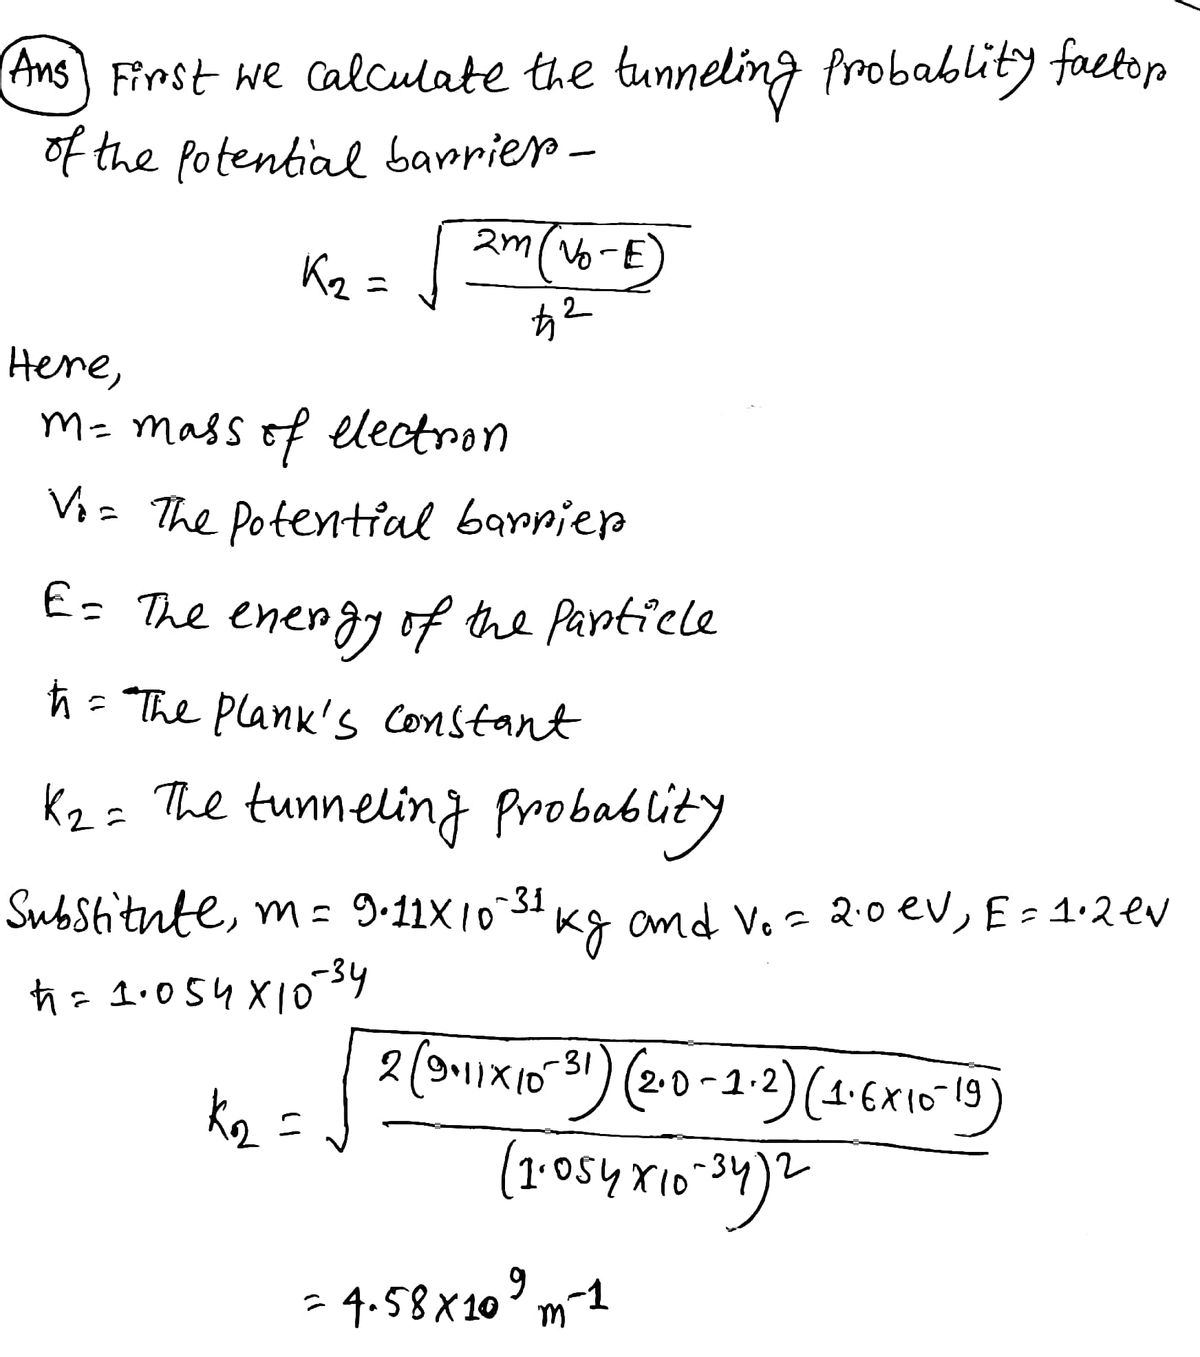 Ans First we calculate the tunneling probablity factor
of the potential barrier -
K₂ = √(2m(V₀-E)/ħ²)
Here,
m = mass of electron
V₀ = The potential barrier
E = The energy of the Particle
ħ = The Plank's constant
K₂ = The tunneling probablity
Substitute, m = 9.11×10⁻³¹ kg and V₀ = 2.0 eV, E = 1.2 eV
ħ = 1.054 ×10⁻³⁴
K₂ = √(2(9.11×10⁻³¹)(2.0-1.2)(1.6×10⁻¹⁹)/(1.054×10⁻³⁴)²)
= 4.58×10⁹ m⁻¹